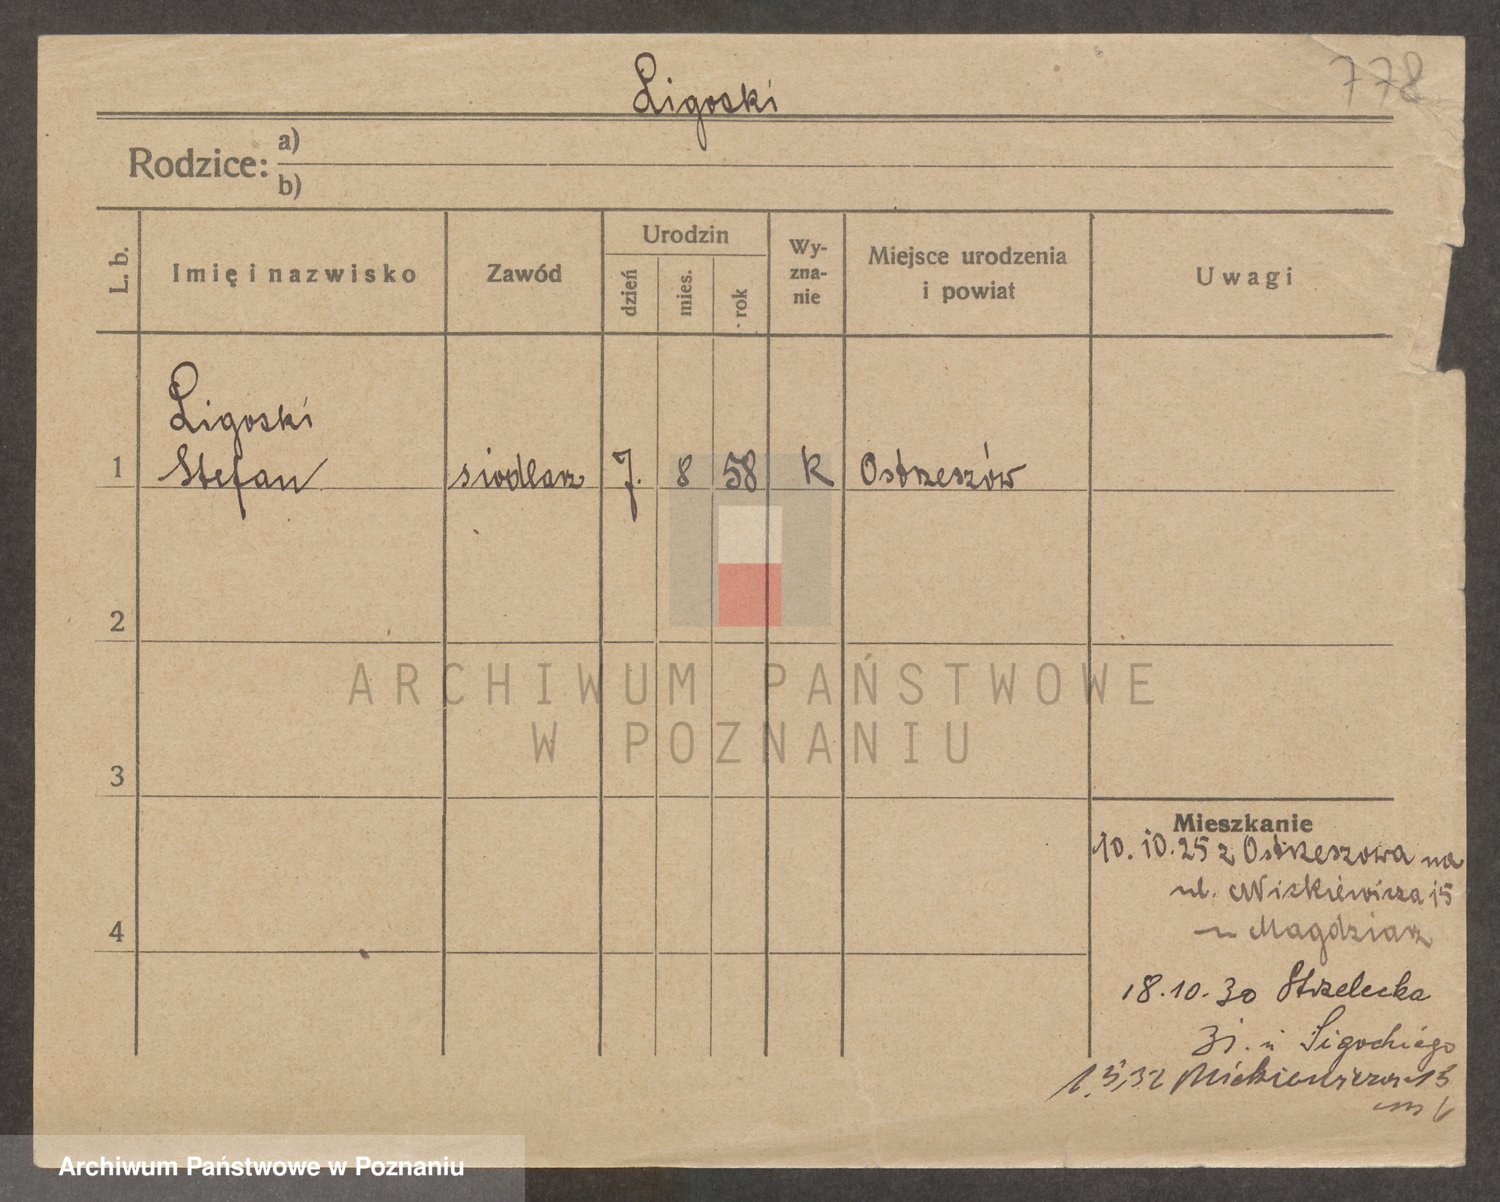 778
Ligoski
Rodzice:
a)
b)
L. b.
Imię i nazwisko
Zawód
Urodzin
dzień
mies.
rok
Wy-
zna-
nie
Miejsce urodzenia
i powiat
Uwagi
Ligoski
1 Stefan siodlarz 7. 8 58 k Ostrzeszów
2
3
4
ARCHIWUM PAŃSTWOWE
W POZNANIU
Mieszkanie
10.10.25 z Ostrzeszowa na
ul. Mickiewicza 15
u Magdziarz
18.10.30 Strzelecka
u Ligockiego
1.5.32 Mickiewicza 15
Archiwum Państwowe w Poznaniu